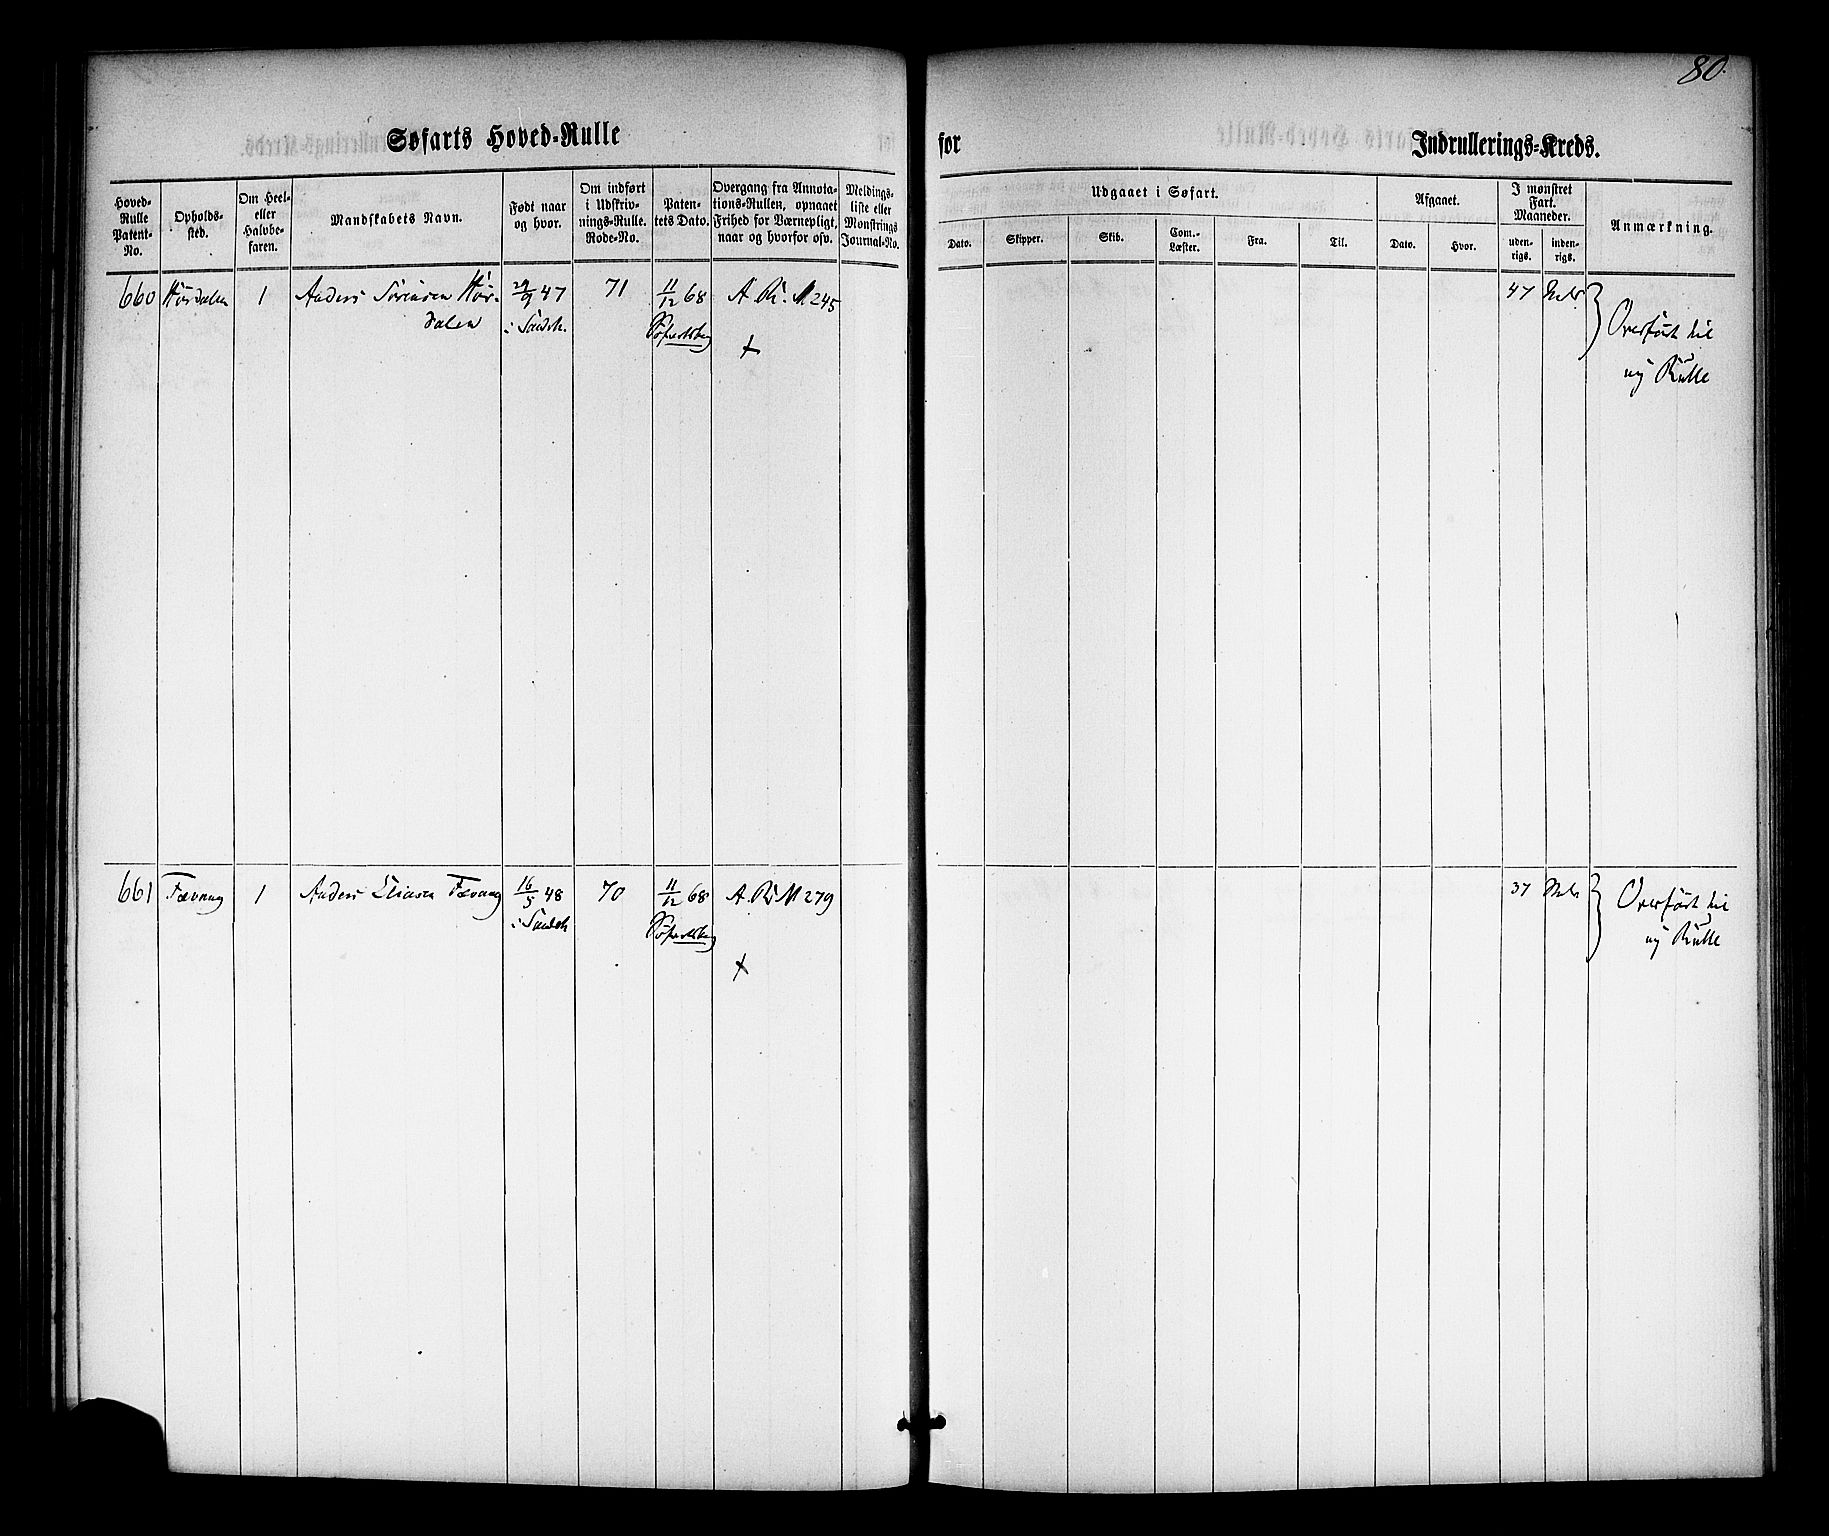 80.
Søfarts Hoved-Rulle
for
Indrullerings-Kreds.
Hoved-
Rulle
Patent-
No.
Opholds-
sted.
Om Heel-
eller
Halvbe-
faren.
Mandskabets Navn.
Født naar
og hvor.
Om indført
i Udskriv-
nings-Rulle.
Rode-No.
Paten-
tets Dato.
Overgang fra Annota-
tions-Rullen, opnaaet
Frihed for Værnepligt,
naar og hvorfor osv.
Meldings-
liste eller
Mønstrings
Journal-No.
Udgaaet i Søfart.
Dato.
Skipper.
Skib.
Com.-
Læster.
Fra.
Til.
Afgaaet.
Dato.
Hvor.
I mønstret
Fart.
Maaneder.
uden-
rigs.
inden-
rigs.
Anmærkning.
660 Hørdalen 1 Anders Sörensen Hör- 29/9 47 71 11/12 68 A. R. № 245 47
dalen i Sandeh.
Overført til
ny Rulle
661 Fævang 1 Anders Eliasen Fævang 16/5 48 70 11/12 68 A. R. № 279 37
i Sandeh
Overført til
ny Rulle